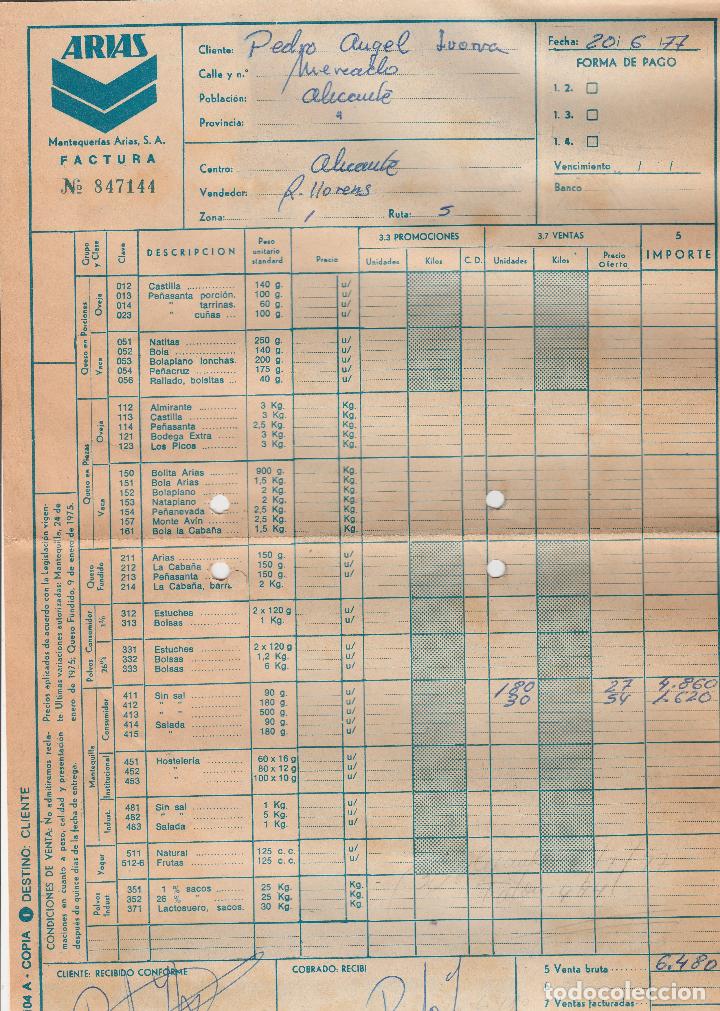 ARIAS
Mantequerías Arias, S. A.
FACTURA
Nº 847144
Cliente: Pedro Angel
Calle y n.º Mercado
Población: Alicante
Provincia: "
Centro: Alicante
Vendedor: R. Llorens
Zona: 1 Ruta: 5
Fecha: 20 / 6 / 77
FORMA DE PAGO
1. 2.
1. 3.
1. 4.
Vencimiento / /
Banco
Grupo y Clase Clave DESCRIPCION Peso unitario standard Precio 3.3 PROMOCIONES Unidades Kilos C. D. 3.7 VENTAS Unidades Kilos Precio Oferta 5 IMPORTE
Queso en Porciones
Oveja
012 Castilla 140 g. u/
013 Peñasanta porción. 100 g. u/
014 " tarrinas. 60 g. u/
023 " cuñas 100 g. u/
Vaca
051 Natitas 250 g. u/
052 Bola 140 g. u/
053 Bolaplano lonchas. 200 g. u/
054 Peñacruz 175 g. u/
056 Rallado, bolsitas 40 g. u/
Queso en Piezas
Oveja
112 Almirante 3 Kg. Kg.
113 Castilla 3 Kg. Kg.
114 Peñasanta 2,5 Kg. Kg.
121 Bodega Extra 3 Kg. Kg.
123 Los Picos 3 Kg. Kg.
Vaca
150 Bolita Arias 900 g. Kg.
151 Bola Arias 1,5 Kg. Kg.
152 Bolaplano 2 Kg. Kg.
153 Nataplano 2 Kg. Kg.
154 Peñanevada 2,5 Kg. Kg.
157 Monte Avín 2,5 Kg. Kg.
161 Bola la Cabaña 1,5 Kg. Kg.
Queso Fundido
211 Arias 150 g. u/
212 La Cabaña 150 g. u/
213 Peñasanta 150 g. u/
214 La Cabaña, barra 2 Kg.
Polvos Consumidor
1%
312 Estuches 2 x 120 g u/
313 Bolsas 1 Kg. u/
26%
331 Estuches 2 x 120 g u/
332 Bolsas 1,2 Kg. u/
333 Bolsas 6 Kg. u/
Mantequilla
Consumidor
411 Sin sal 90 g. u/ 180 27 4.860
412 " " 180 g. u/ 30 54 1.620
413 " " 500 g. u/
414 Salada 90 g. u/
415 " 180 g. u/
Institucional
451 Hostelería 60 x 16 g u/
452 " 80 x 12 g u/
453 " 100 x 10 g u/
Indust.
481 Sin sal 1 Kg. u/
482 " 5 Kg. u/
483 Salada 1 Kg. u/
Yogur
511 Natural 125 c. c. u/
512-6 Frutas 125 c. c. u/
Polvos Indust
351 1 % sacos 25 Kg. Kg.
352 26 % " 25 Kg. Kg.
371 Lactosuero, sacos. 30 Kg. Kg.
Precios aplicados de acuerdo con la Legislación vigen-
te Ultimas variaciones autorizadas: Mantequilla, 24 de
enero de 1975; Queso Fundido, 9 de enero de 1975.
CONDICIONES DE VENTA: No admitiremos recla-
maciones en cuanto a peso, calidad y presentación
después de quince días de la fecha de entrega.
04 A - COPIA 1 DESTINO: CLIENTE
CLIENTE: RECIBIDO CONFORME
COBRADO: RECIBI
5 Venta bruta 6.480
6
7 Ventas facturadas
todocoleccion